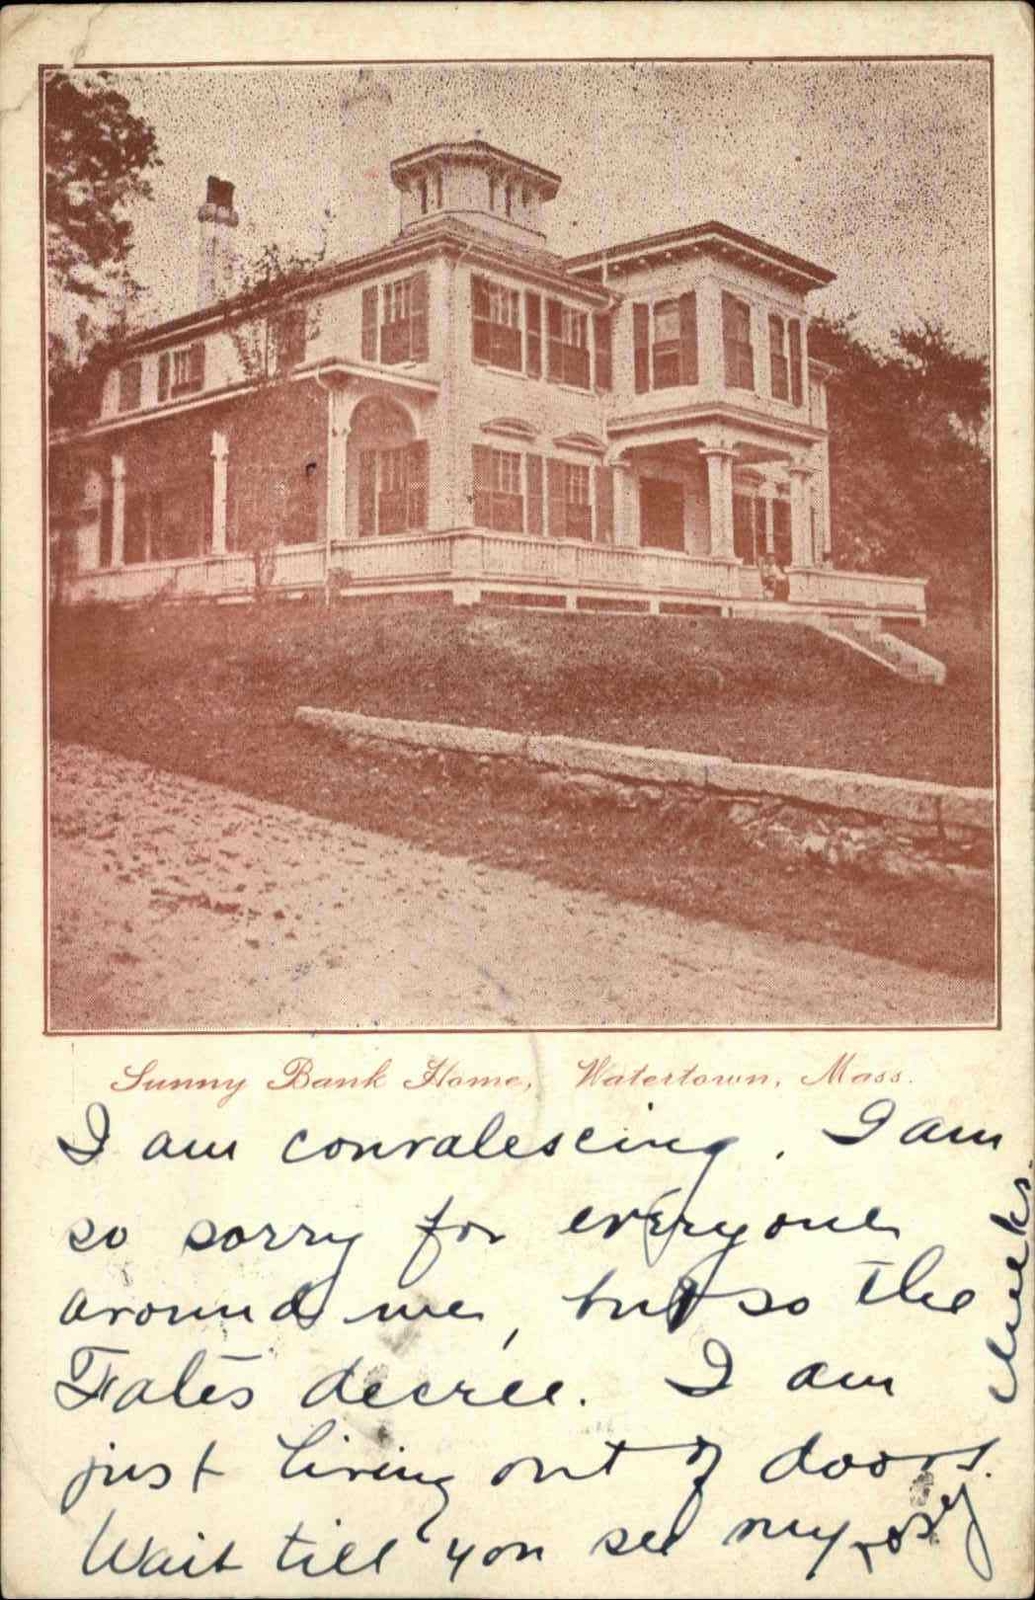 Sunny Bank Home, Watertown, Mass.
I am convalescing. I am
so sorry for everyone
around me, but so the
Fates decree. I am
just living out of doors.
Wait till you see my rosy
cheeks.